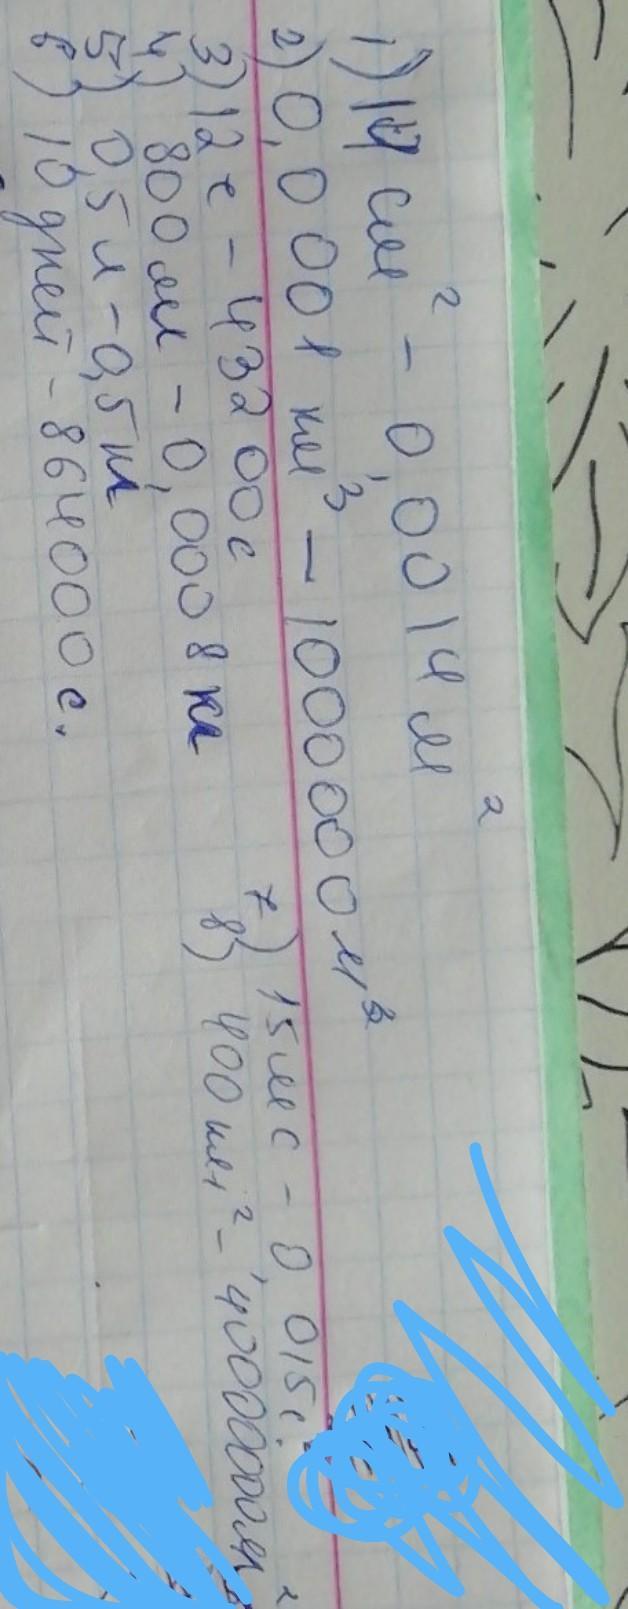 1) 14 см² – 0,0014 м²
2) 0,0001 км³ – 100000 м³
3) 12 ч – 43200 с
4) 800 мл – 0,0008 кл
5) 0,5 л – 0,5 кл
6) 10 дней – 864000 с.
7) 15 мс – 0,015 с.
8) 400 км² – 400000000 м²